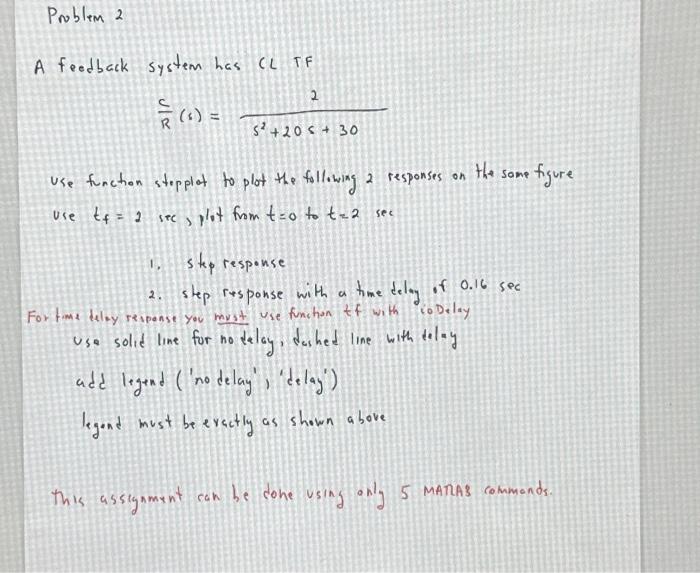 Problem 2
A feedback system has CL TF
C/R (s) = 2 / s² + 20s + 30
use function stepplot to plot the following 2 responses on the same figure
use tf = 2 sec, plot from t=0 to t=2 sec
1. step response
2. step response with a time delay of 0.16 sec
For time delay response you must use function tf with ioDelay
use solid line for no delay, dashed line with delay
add legend ('no delay', 'delay')
legend must be exactly as shown above
This assignment can be done using only 5 MATLAB commands.